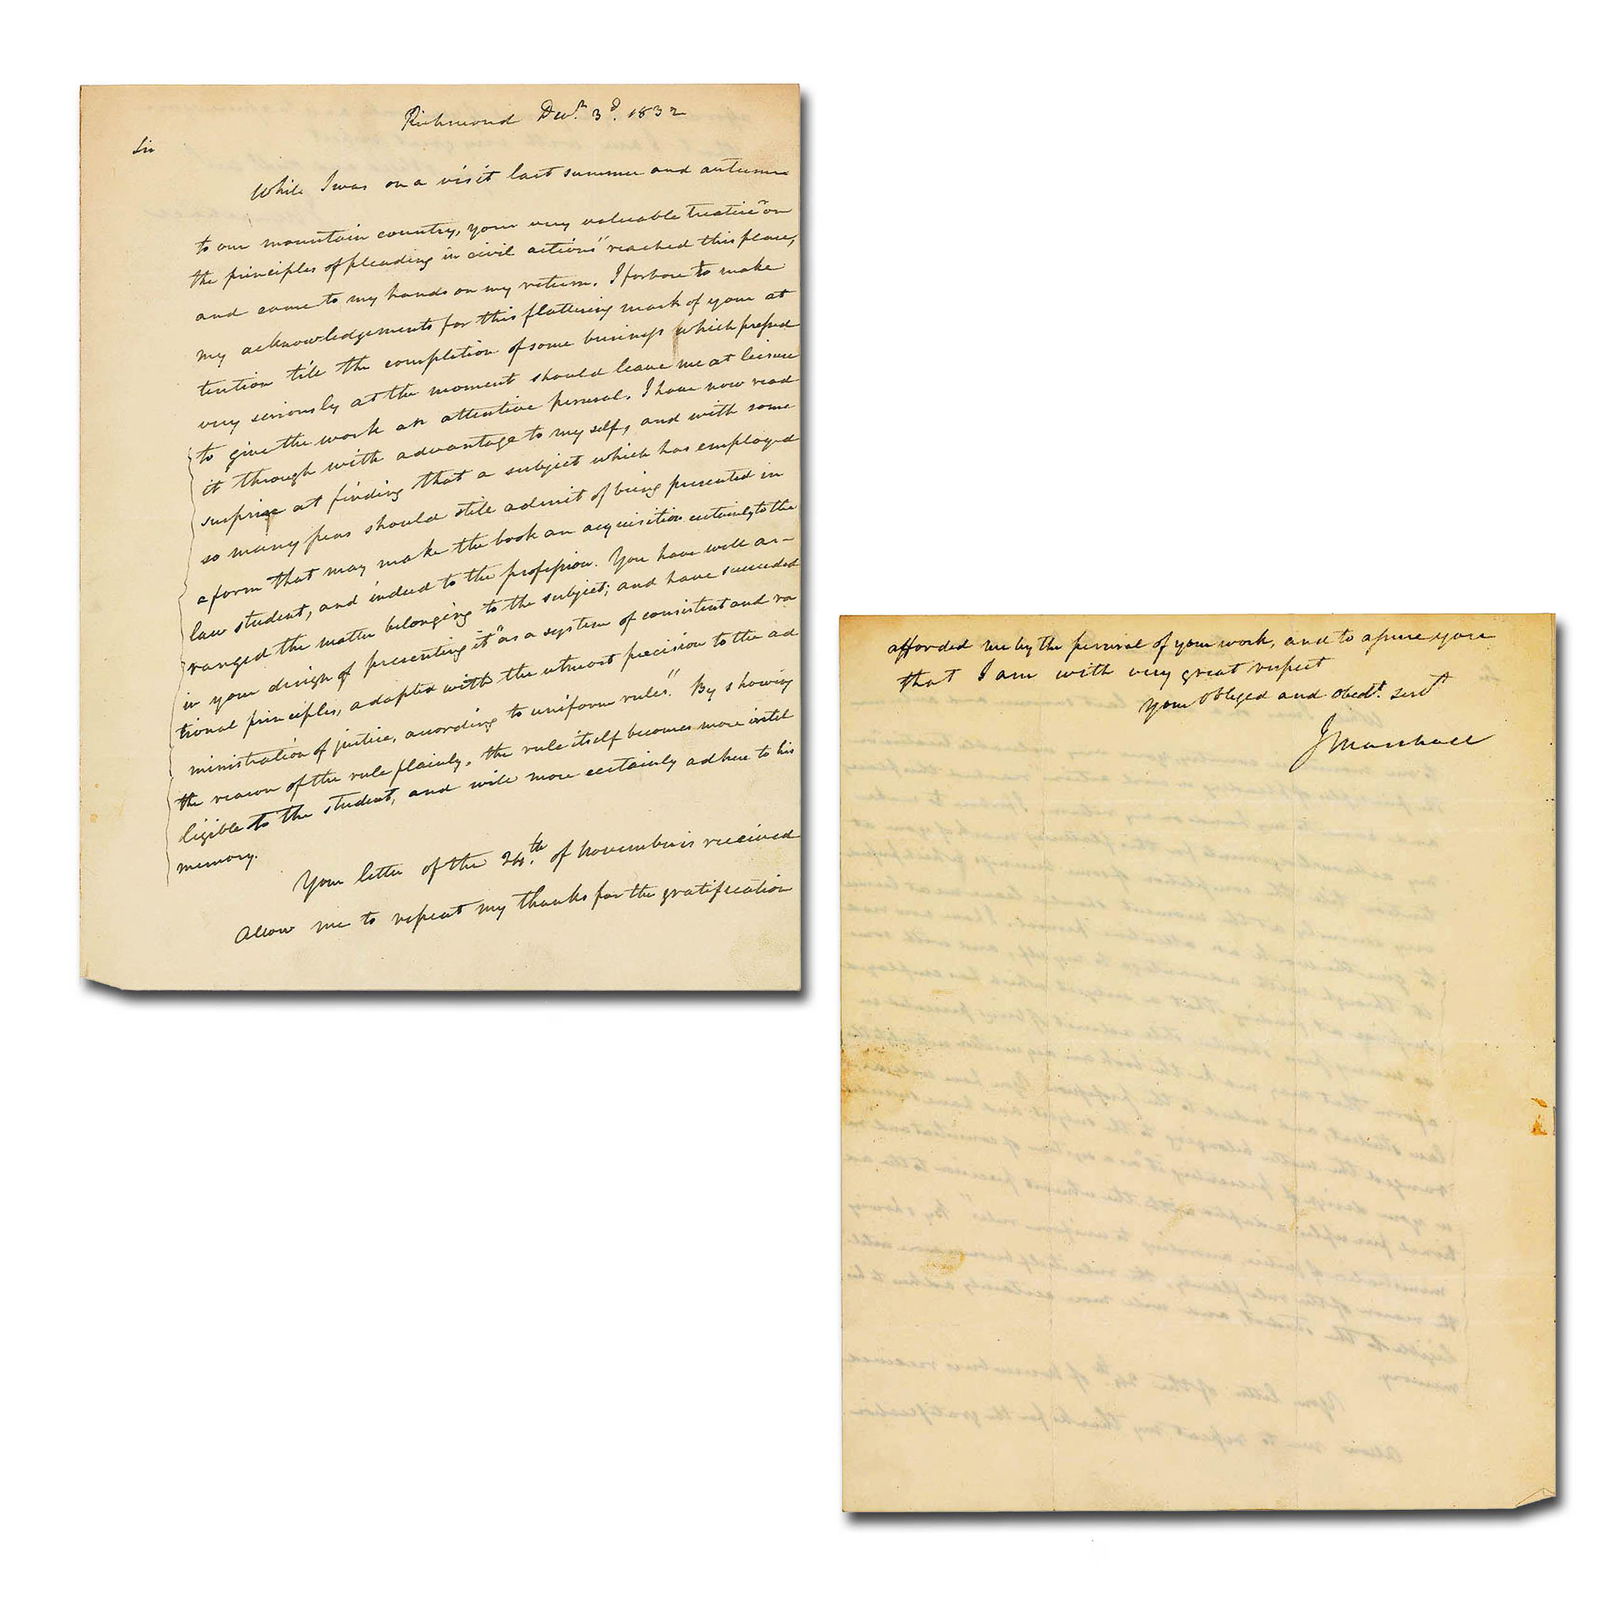 Richmond Decr. 3d. 1832
Sir
While I was on a visit last summer and autumn
to our mountain country, your very valuable treatise "on
the principles of pleading in civil actions" reached this place,
and came to my hands on my return. I forbore to make
my acknowledgements for this flattering mark of your at
tention till the completion of some business which pressed
very seriously at the moment should leave me at leisure
to give the work an attentive perusal. I have now read
it through with advantage to myself, and with some
surprise at finding that a subject which has employed
so many pens should still admit of being presented in
a form that may make the book an acquisition certainly to the
law student, and indeed to the profession. You have well ar-
ranged the matter belonging to the subject; and have succeeded
in your design of presenting it "as a system of consistent and ra
tional principles, adapted with the utmost precision to the ad
ministration of justice, according to uniform rules." By showing
the reason of the rule plainly, the rule itself becomes more intel
ligible to the student, and will more certainly adhere to his
memory.
Your letter of the 24th. of November is received
Allow me to repeat my thanks for the gratification
afforded me by the perusal of your work, and to assure you
that I am with very great respect
your obliged and obedt. servt
J Marshall